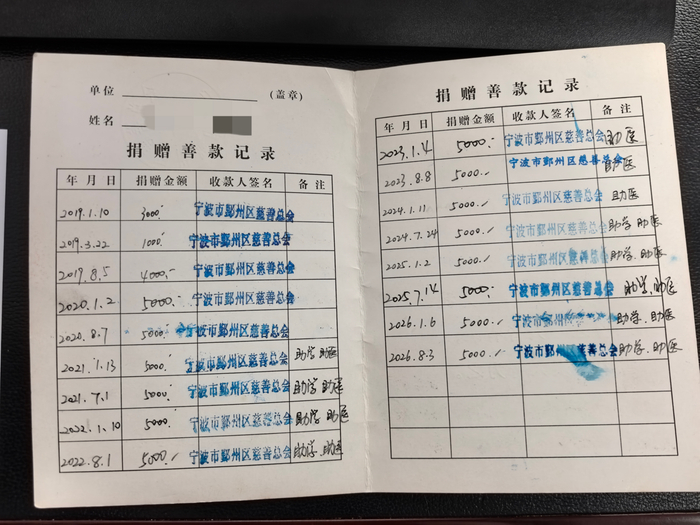 单位 (盖章)
姓名
捐赠善款记录
年月日 捐赠金额 收款人签名 备注
2019.1.10 3000.- 宁波市鄞州区慈善总会
2019.3.22 1000.- 宁波市鄞州区慈善总会
2019.8.5 4000.- 宁波市鄞州区慈善总会
2020.1.2 5000.- 宁波市鄞州区慈善总会
2020.8.7 5000.- 宁波市鄞州区慈善总会
2021.1.13 5000.- 宁波市鄞州区慈善总会 助学 助医
2021.7.1 5000.- 宁波市鄞州区慈善总会 助学 助医
2022.1.10 5000.- 宁波市鄞州区慈善总会 助学 助医
2022.8.1 5000.- 宁波市鄞州区慈善总会 助学.助医
捐赠善款记录
年月日 捐赠金额 收款人签名 备注
2023.1.4 5000.- 宁波市鄞州区慈善总会 助医
2023.8.8 5000.- 宁波市鄞州区慈善总会 助医
2024.1.11 5000.- 宁波市鄞州区慈善总会 助医
2024.7.24 5000.- 宁波市鄞州区慈善总会 助学.助医
2025.1.2 5000.- 宁波市鄞州区慈善总会 助学.助医
2025.7.14 5000.- 宁波市鄞州区慈善总会 助学.助医
2026.1.6 5000.- 宁波市鄞州区慈善总会 助学.助医
2026.8.3 5000.- 宁波市鄞州区慈善总会 助学.助医